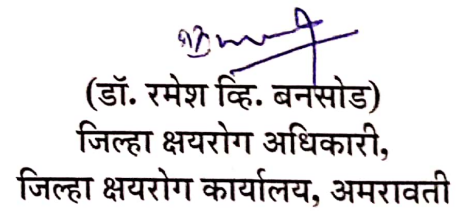 (डॉ. रमेश व्हि. बनसोड)
जिल्हा क्षयरोग अधिकारी,
जिल्हा क्षयरोग कार्यालय, अमरावती